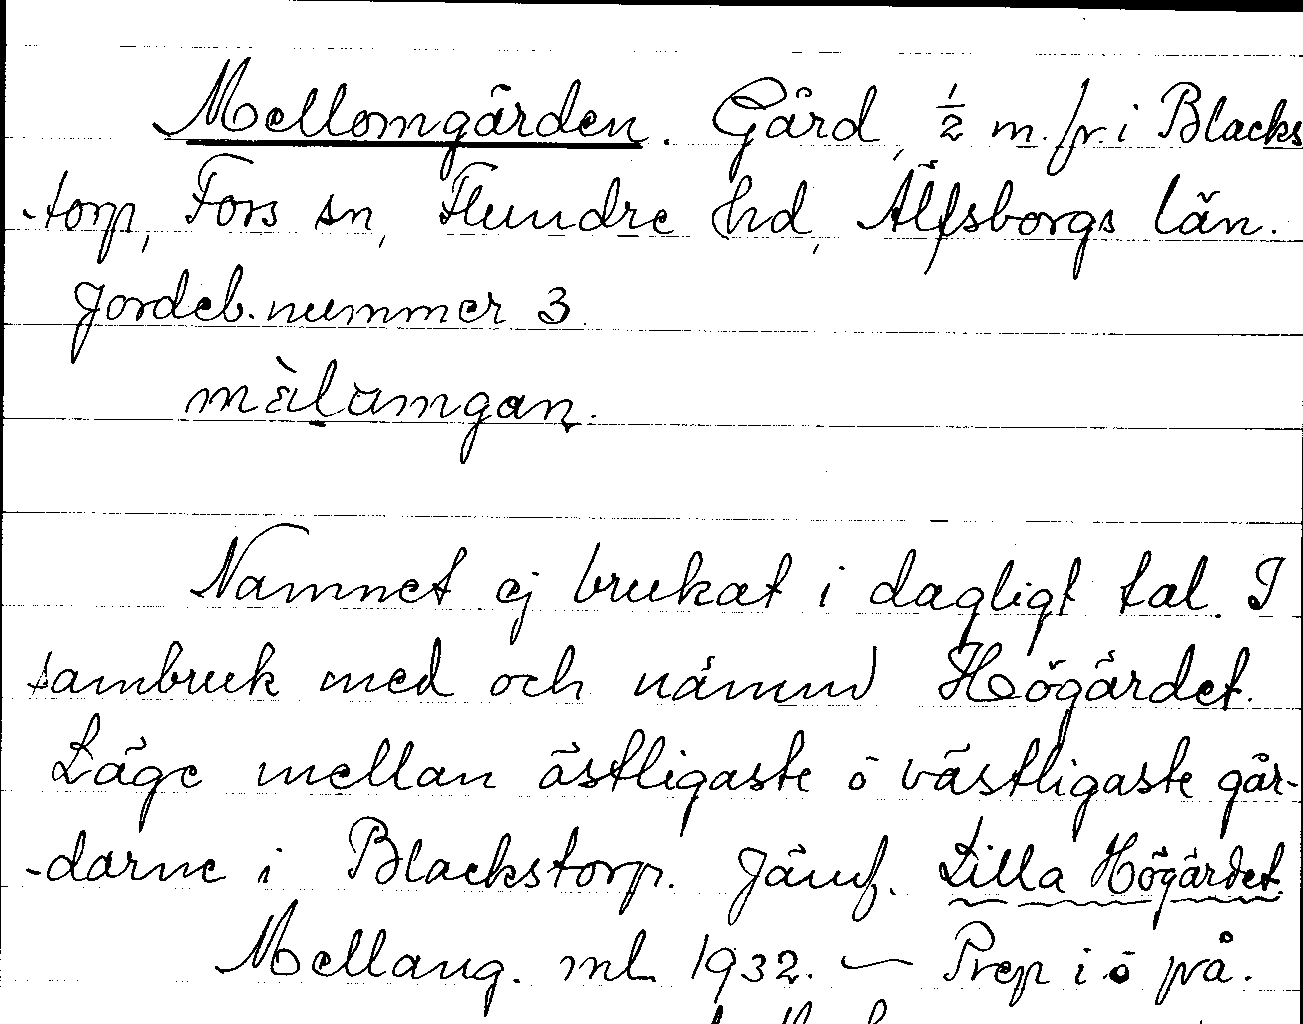 Mellomgården. Gård, ½ m. fr. i Blacks
-torp, Fors sn, Flundre hd, Älfsborgs län.
Jordeb. nummer 3.
mälamgan.
Namnet ej brukat i dagligt tal. I
sambruk med och nämnd Högärdet.
Läge mellan östligaste o västligaste går-
-darne i Blackstorp. Jämf. Lilla Högärdet.
Mellang. ml 1932. — Prep i o på.